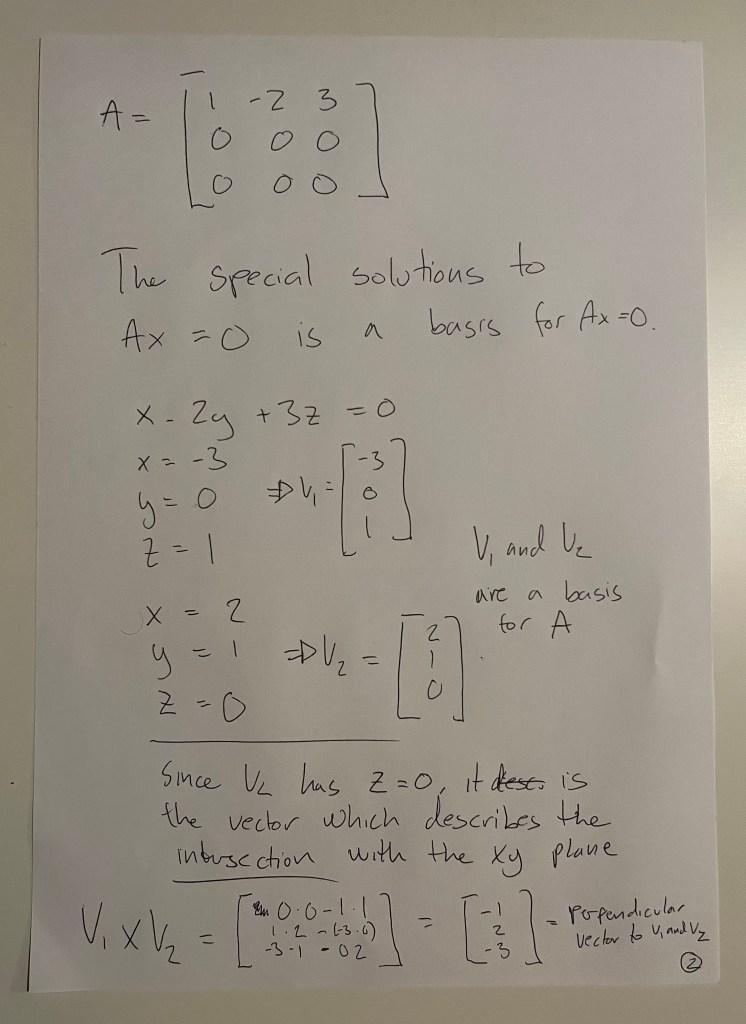 A = [ 1 -2 3
0 0 0
0 0 0 ]
The special solutions to
Ax = 0 is a basis for Ax=0.
x - 2y + 3z = 0
x = -3
y = 0 ⇒ V₁ = [ -3 0 1 ]
z = 1
V₁ and V₂
are a basis
for A
x = 2
y = 1 ⇒ V₂ = [ 2 1 0 ].
z = 0
Since V₂ has z=0, it desc. is
the vector which describes the
intersection with the xy plane
V₁ × V₂ = [ 0·0-1·1
1·2 - (-3·0)
-3·1 - 0 2 ] = [ -1 2 -3 ] = perpendicular
vector to V₁ and V₂
2